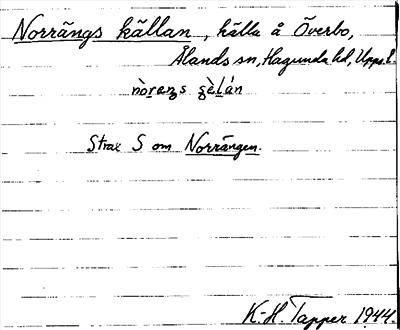 Norrängs källan, källa å Överbo,
Ålands sn, Hagunda hd, Upps. l.
Strax S om Norrängen.
K.-H. Tapper 1944.